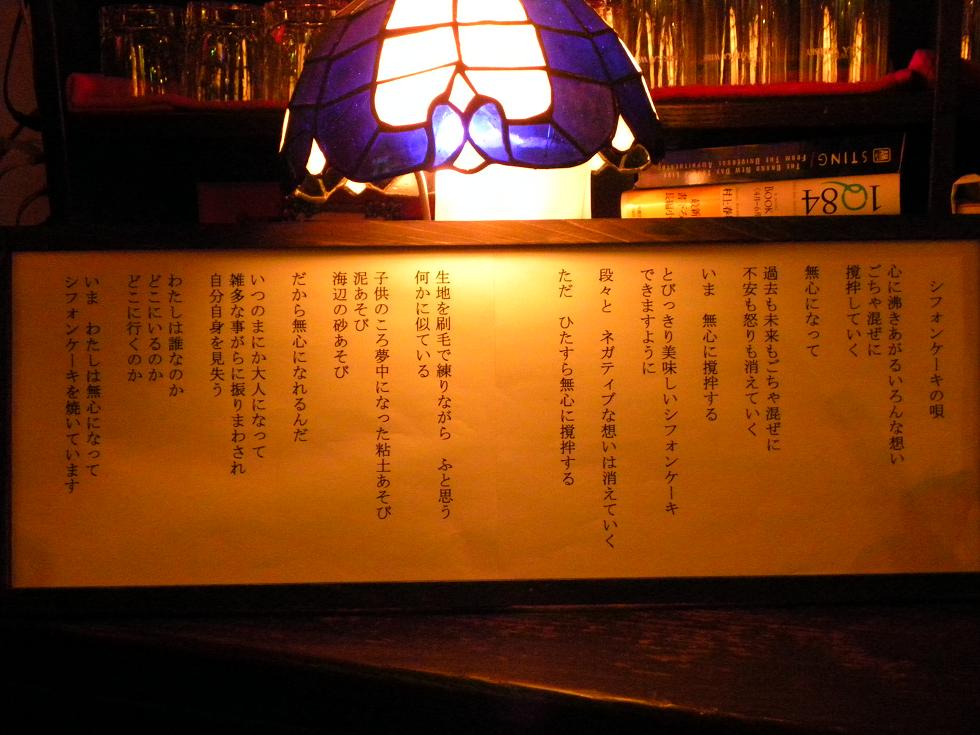 シフォンケーキの唄
心に沸きあがるいろんな想い
ごちゃ混ぜに
撹拌していく
無心になって
過去も未来もごちゃ混ぜに
不安も怒りも消えていく
いま　無心に撹拌する
とびっきり美味しいシフォンケーキ
できますように
段々と　ネガティブな想いは消えていく
ただ　ひたすら無心に撹拌する
生地を刷毛で練りながら　ふと思う
何かに似ている
子供のころ夢中になった粘土あそび
泥あそび
海辺の砂あそび
だから無心になれるんだ
いつのまにか大人になって
雑多な事がらに振りまわされ
自分自身を見失う
わたしは誰なのか
どこにいるのか
どこに行くのか
いま　わたしは無心になって
シフォンケーキを焼いています
STING
1Q84
BOOK
村上春